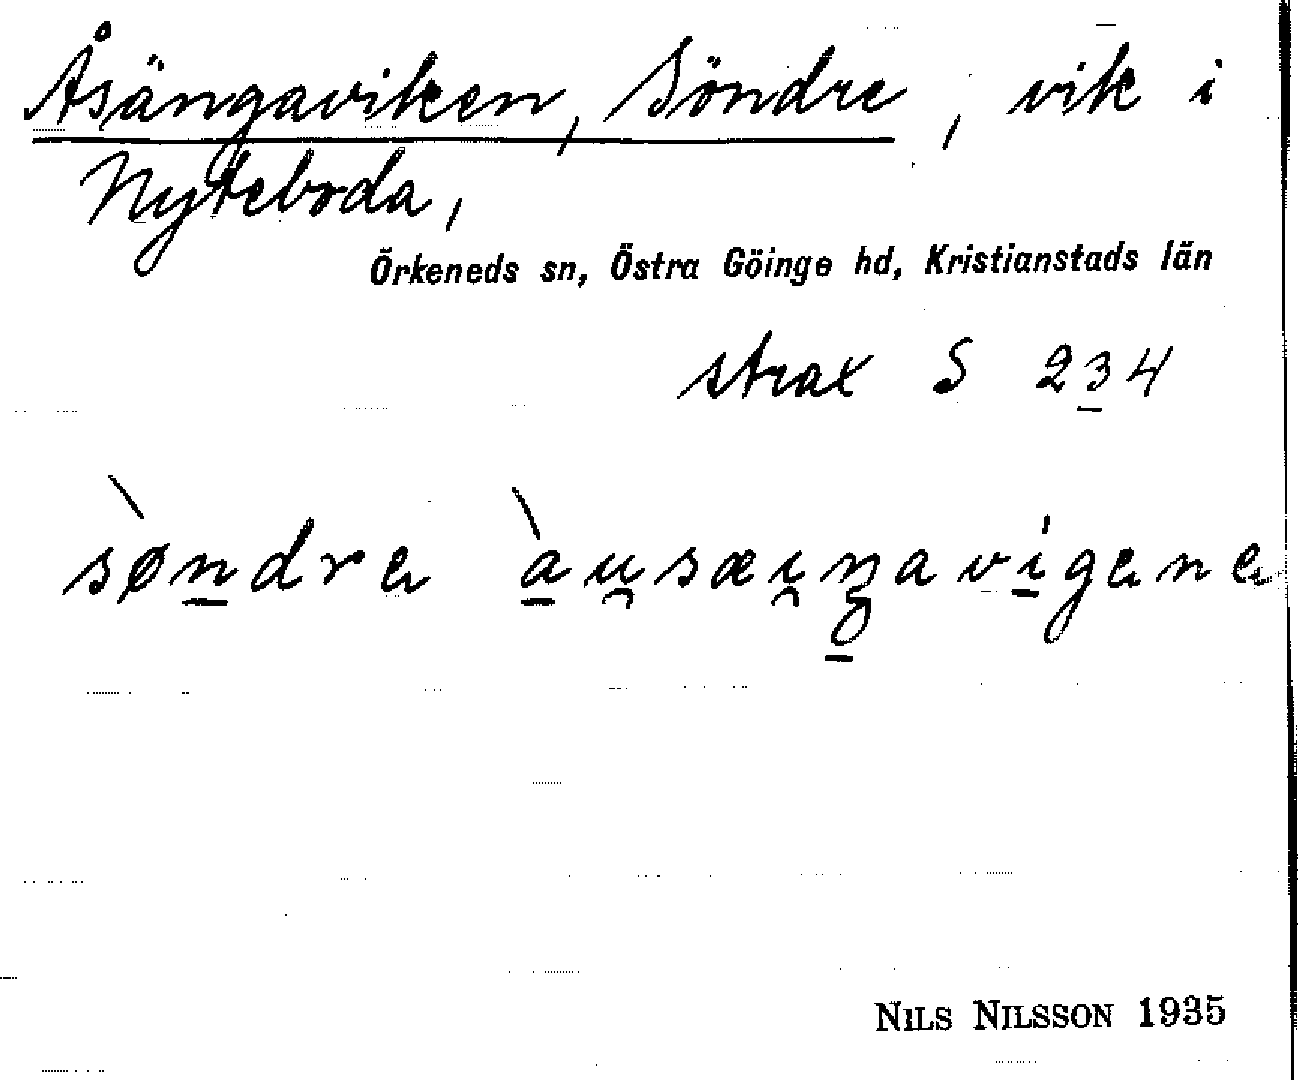 Åsängaviken, Söndre, vik i
Nyteboda,
Örkeneds sn, Östra Göinge hd, Kristianstads län
strax S 234
sø̀n̠dre à̠u̯sæi̯ŋ̠avi̠genə
NILS NILSSON 1935